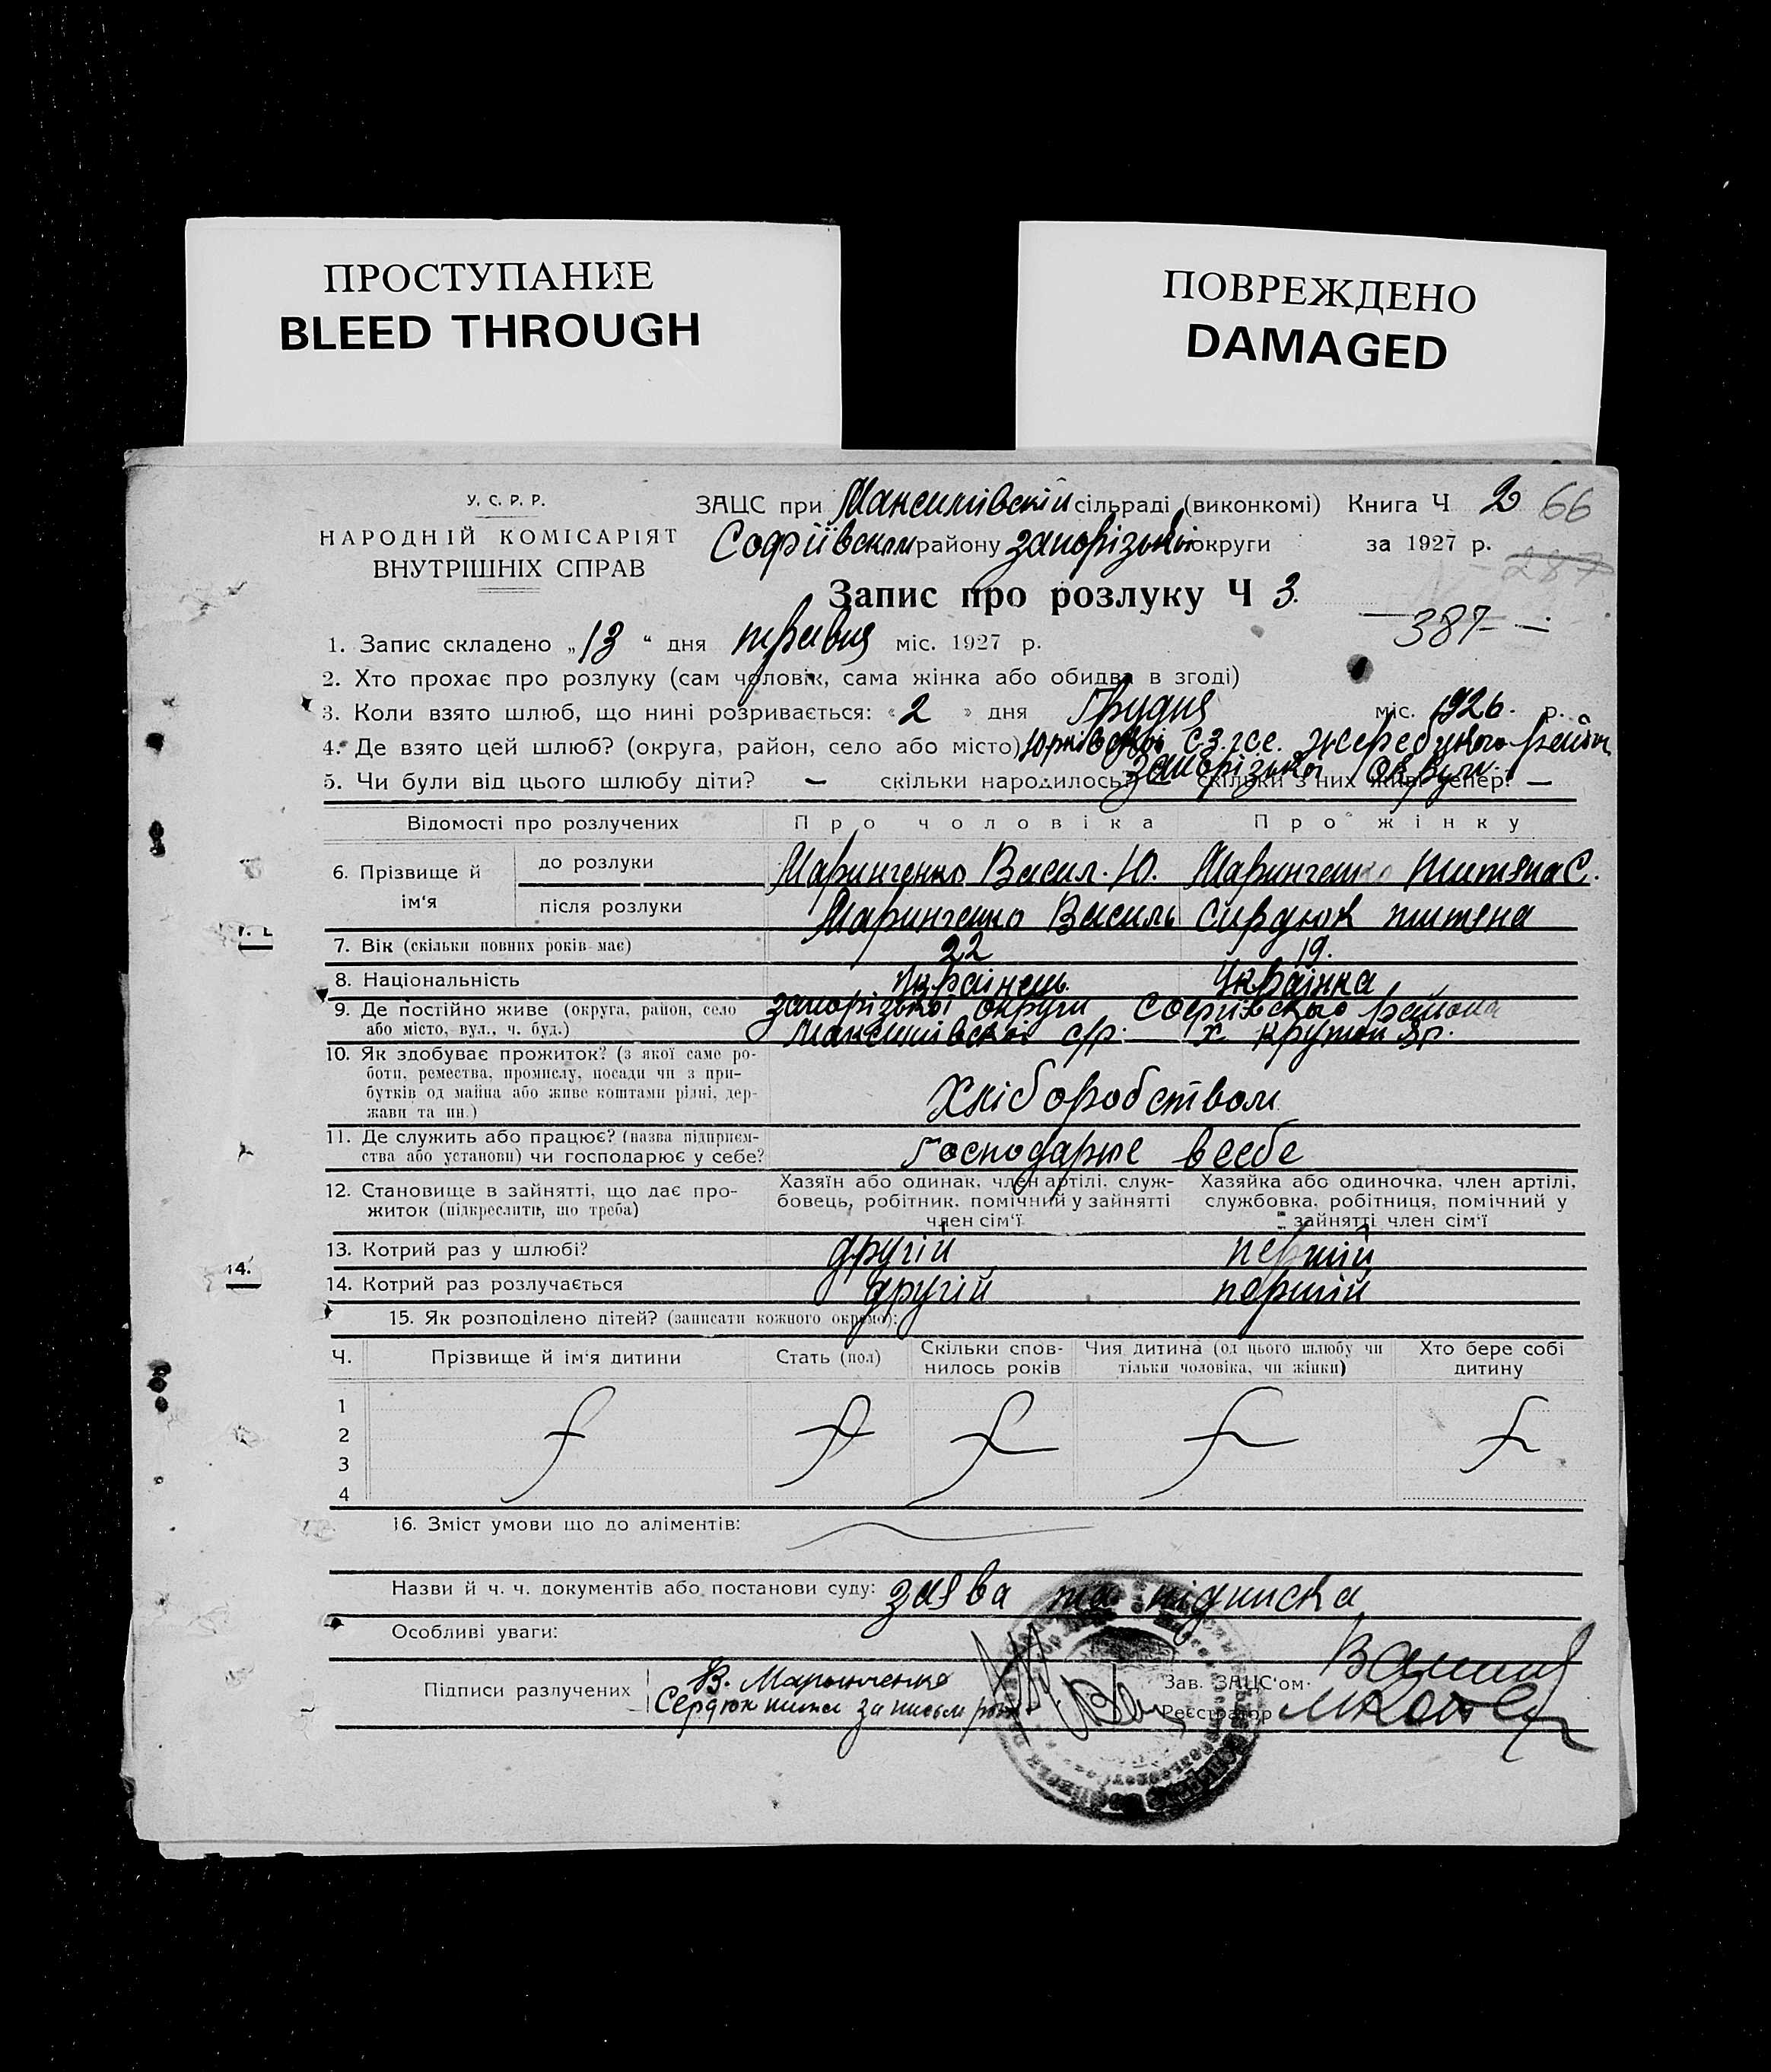 ПРОСТУПАНИЕ
BLEED THROUGH
ПОВРЕЖДЕНО
DAMAGED
У. С. Р. Р.
НАРОДНІЙ КОМІСАРІЯТ
ВНУТРІШНІХ СПРАВ
ЗАЦС при Максимівскій сільраді (виконкомі) Книга Ч 2 66
Софіївском району запорізької округи за 1927 р.
287
Запис про розлуку Ч 3.
387
1. Запис складено „13“ дня травня міс. 1927 р.
2. Хто прохає про розлуку (сам чоловік, сама жінка або обидва в згоді)
3. Коли взято шлюб, що нині розривається: «2» дня Грудня міс. 1926. р.
4. Де взято цей шлюб? (округа, район, село або місто) району
запорізької округи
5. Чи були від цього шлюбу діти? — скільки народилось? — скільки з них живі тепер? —
Відомості про розлучених Про чоловіка Про жінку
6. Прізвище й ім‘я
до розлуки Маринченко Васил. Ю. Маринченко С.
після розлуки Маринченко Василь Сирдюк
7. Вік (скільки повних років має) 22 19.
8. Національність Українець Українка
9. Де постійно живе (округа, район, село запорізької округи Софіївского района
або місто, вул., ч. буд.) Максимівскої с/р. х. крутой
10. Як здобуває прожиток? (з якої саме ро-
боти, ремества, промислу, посади чи з при-
бутків од майна або живе коштами рідні, дер-
жави та ин.) Хліборобством
11. Де служить або працює? (назва підприєм-
ства або установи) чи господарює у себе? Господарює в себе
12. Становище в зайнятті, що дає про-
житок (підкреслити, що треба)
Хазяїн або одинак, член артілі, служ-
бовець, робітник, помічний у зайнятті
член сім‘ї
Хазяйка або одиночка, член артілі,
службовка, робітниця, помічний у
зайнятті член сім‘ї
13. Котрий раз у шлюбі? другій першій
14. Котрий раз розлучається другій першій
15. Як розподілено дітей? (записати кожного окремо):
Ч. Прізвище й ім‘я дитини Стать (пол) Скільки спов-
нилось років Чия дитина (од цього шлюбу чи
тільки чоловіка, чи жінки) Хто бере собі
дитину
1
2
3
4
16. Зміст умови що до аліментів:
Назви й ч. ч. документів або постанови суду: заява та підписка
Особливі уваги:
Підписи разлучених В. Маринченко
Сердюк
Зав. ЗАЦС‘ом
Реєстратор
14.